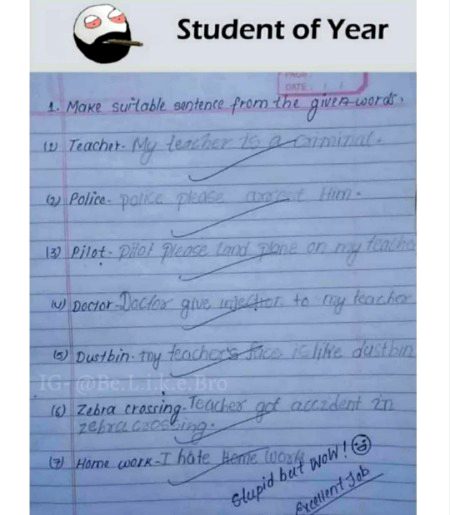 Student of Year
PAGE
DATE: / /
1. Make suitable sentence from the given words.
(1) Teacher. My teacher is a criminal.
(2) Police. police please Him.
(3) Pilot. pilot please land plane on my teache
(4) Doctor. Doctor give injection to my teacher
(5) Dustbin. my teacher's face is like dustbin
IG- @Be.L.i.k.e.Bro
(6) Zebra crossing. Teacher got accident in
zebra crossing.
(7) Home work - I hate Home Work
Stupid but wow!
Excellent Job